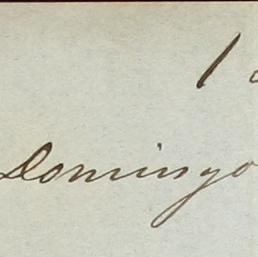 1
Domingo